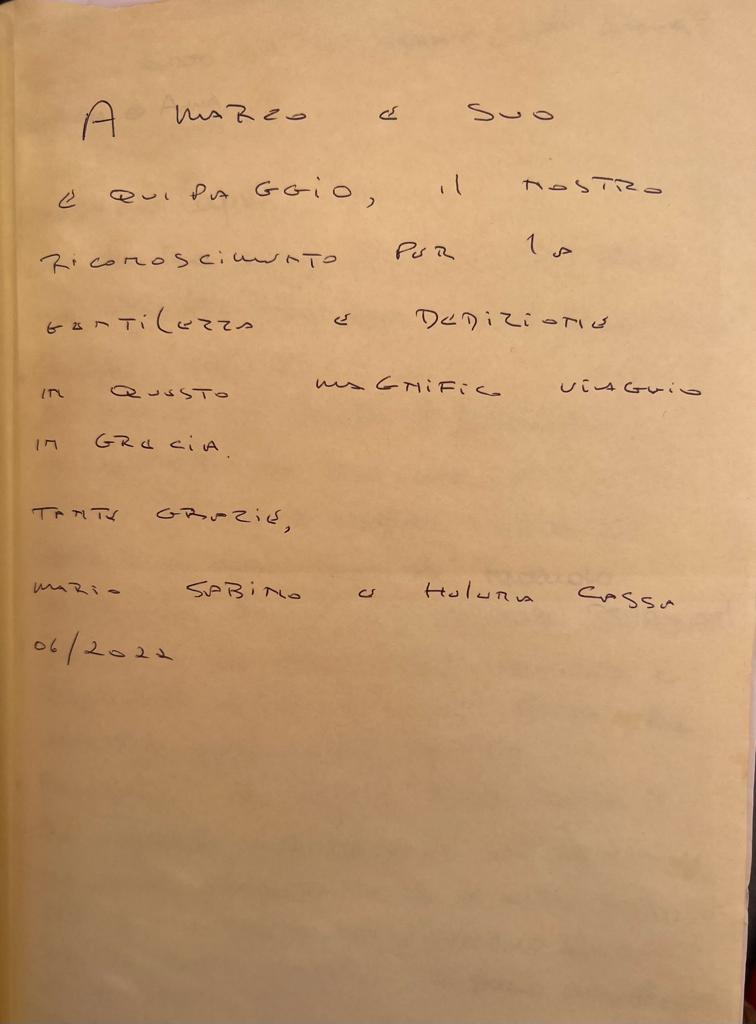 A MARCO e SUO
e QUIPAGGIO, il NOSTRO
RICONOSCIMENTO PER la
GENTILEZZA e DEDIZIONE
IN QUESTO MAGNIFICO VIAGGIO
IN GRECIA.
TANTE GRAZIE,
MARIO SABINO e HELENA CASSA
06/2022